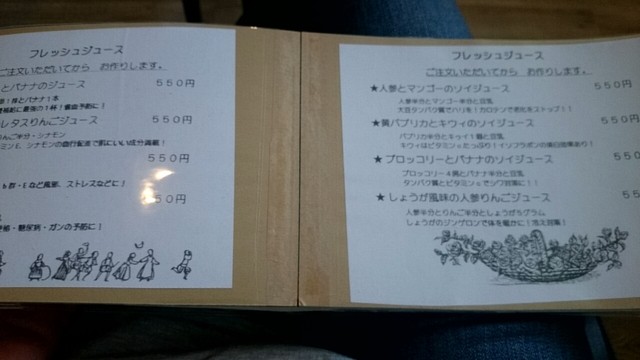 フレッシュジュース
ご注文いただいてから お作りします。
とバナナのジュース 550円
バナナ1本
レタスりんごジュース 550円
んご半分・シナモン
550円
b群・Eなど風邪、ストレスなどに!
50円
糖尿病・ガンの予防に!
フレッシュジュース
ご注文いただいてから お作りします。
★人参とマンゴーのソイジュース 550
人参半分とマンゴー半分と豆乳
大豆タンパク質でハリを!カロテンで老化をストップ!!
★黄パプリカとキウィのソイジュース 55
パプリカ半分とキゥイ1個と豆乳
キウィはビタミンcたっぷり!イソフラボンの美白効果あり!
★ブロッコリーとバナナのソイジュース 55
ブロッコリー4房とバナナ半分と豆乳
タンパク質とビタミンcでシワ対策に!!
★しょうが風味の人参りんごジュース 55
人参半分とりんご半分としょうが5グラム
しょうがのジンゲロンで体を暖かに!冷え対策!